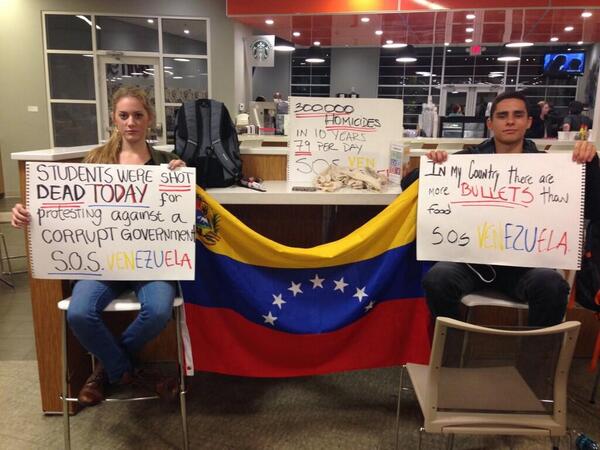 STUDENTS WERE SHOT
DEAD TODAY for
protesting against a
CORRUPT GOVERNMENT
S.O.S. VENEZUELA
300000
HOMICIDES
IN 10 YEARS
79 PER DAY
SOS VEN
In My Country there are
more BULLETS than
food
S.O.S VENEZUELA.